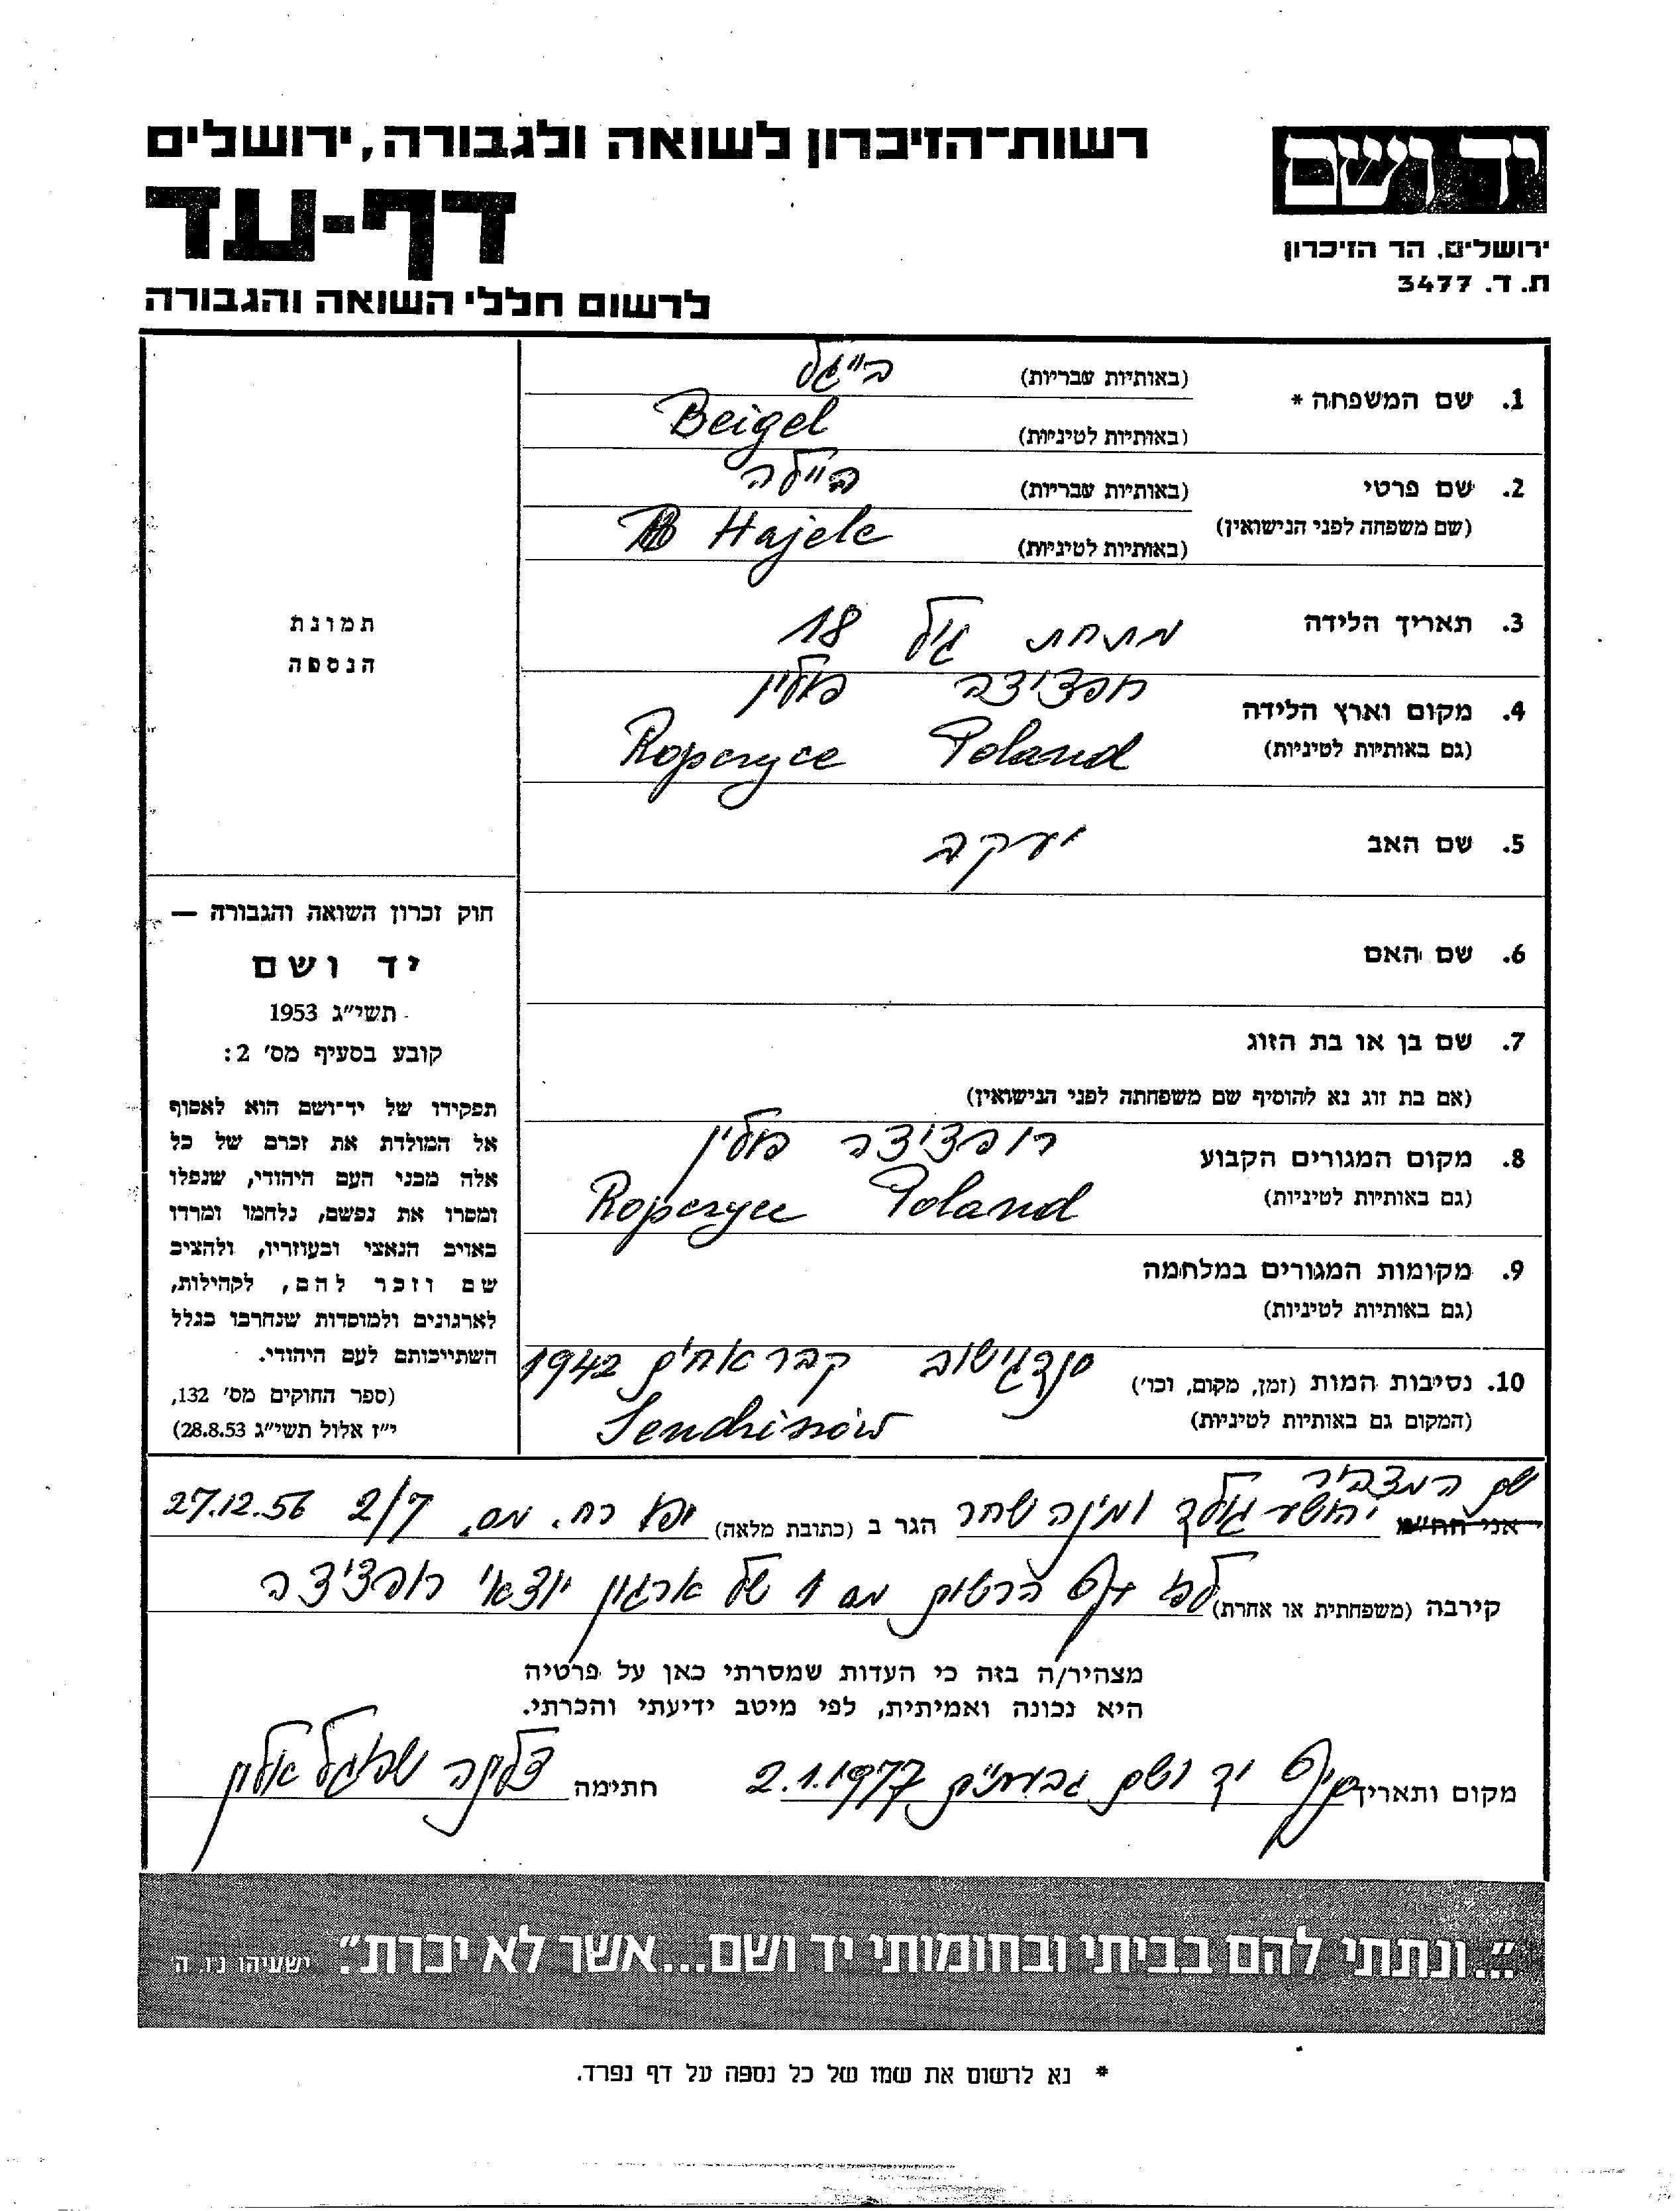 יד ושם
ירושלים, הר הזיכרון
ת. ד. 3477
רשות־הזיכרון לשואה ולגבורה, ירושלים
דף-עד
לרשום חללי השואה והגבורה
1. שם המשפחה * (באותיות עבריות) בייגל
(באותיות לטיניות) Beigel
2. שם פרטי (באותיות עבריות) היילה
(שם משפחה לפני הנישואין) (באותיות לטיניות) Hajele
3. תאריך הלידה מתחת גיל 18
4. מקום וארץ הלידה רופציצה פולין
(גם באותיות לטיניות) Poland Ropczyce
5. שם האב יעקב
6. שם האם
7. שם בן או בת הזוג
(אם בת זוג נא להוסיף שם משפחתה לפני הנישואין)
8. מקום המגורים הקבוע רופציצה פולין
(גם באותיות לטיניות) Poland Ropczyce
9. מקומות המגורים במלחמה
(גם באותיות לטיניות)
10. נסיבות המות (זמן, מקום, וכו') קבר אחים 1942
(המקום גם באותיות לטיניות) Sendziszów
תמונת
הנספה
חוק זכרון השואה והגבורה —
יד ושם
תשי"ג 1953
קובע בסעיף מס' 2:
תפקידו של יד־ושם הוא לאסוף
אל המולדת את זכרם של כל
אלה מבני העם היהודי, שנפלו
ומסרו את נפשם, נלחמו ומרדו
באויב הנאצי ובעוזריו, ולהציב
שם וזכר להם, לקהילות,
לארגונים ולמוסדות שנחרבו בגלל
השתייכותם לעם היהודי.
(ספר החוקים מס' 132,
י"ז אלול תשי"ג 28.8.53)
שם המצהיר
אני הח"מ יהושע ומינה שחר הגר ב (כתובת מלאה) יפו רח. מס. 2/7 27.12.56
קירבה (משפחתית או אחרת) לפי דף הרשום מס 1 של ארגון יוצאי רופציצה
מצהיר/ה בזה כי העדות שמסרתי כאן על פרטיה
היא נכונה ואמיתית, לפי מיטב ידיעתי והכרתי.
מקום ותאריך סניף יד ושם גבעתיים 2.1.1977 חתימה שפיגל אילון
"...ונתתי להם בביתי ובחומותי יד ושם...אשר לא יכרת". ישעיהו נ״ו. ה
* נא לרשום את שמו של כל נספה על דף נפרד.